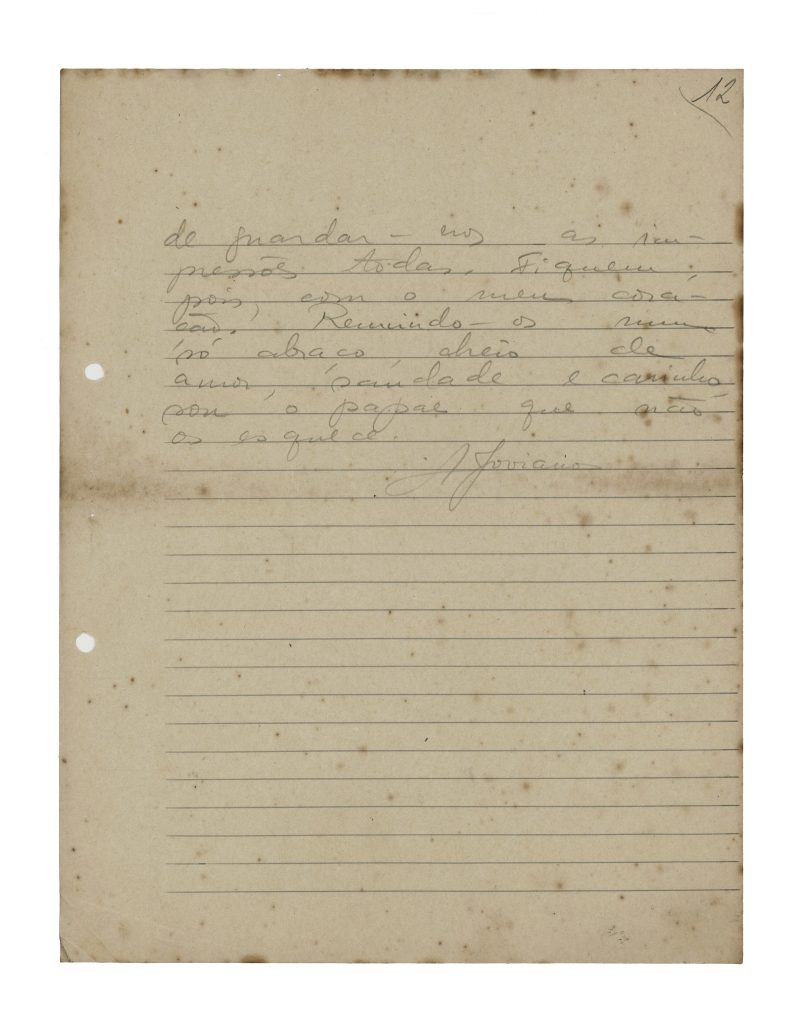 12
de guardar-nos as im-
pressões todas. Fiquem,
pois, com o meu cora-
ção. Reunindo-os num
só abraço, cheio de
amor, saudade e carinho
sou o papae que não
os esquece.
A Joviano